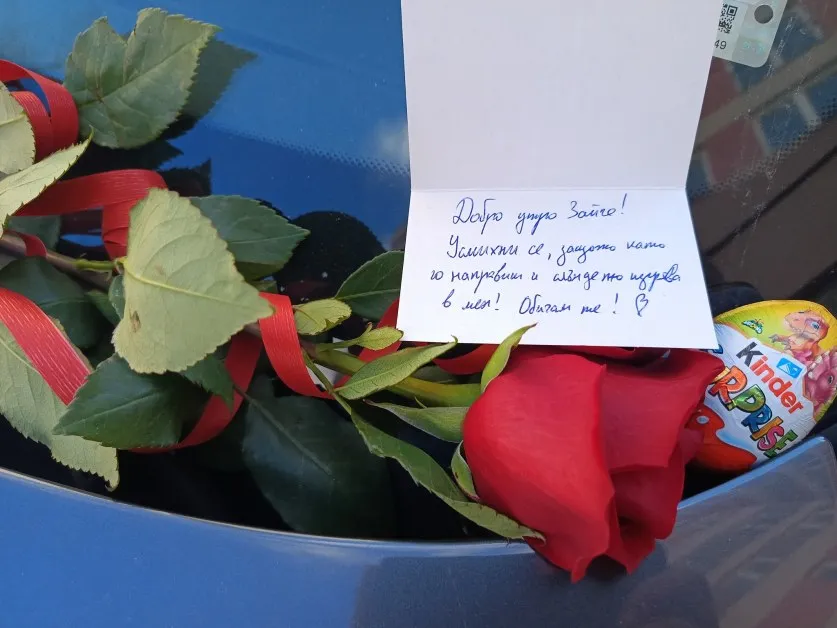 49
Добро утро Зайче!
Усмихни се, защото като
го направиш и слънцето изгрява
в мен! Обичам те!
Kinder
SURPRISE